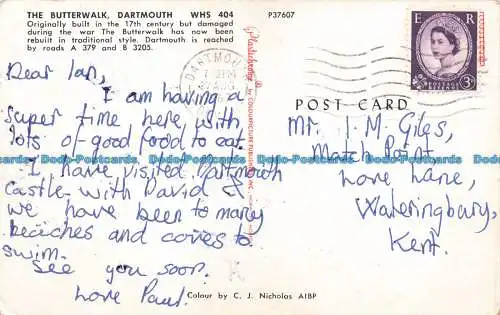 THE BUTTERWALK, DARTMOUTH WHS 404
Originally built in the 17th century but damaged
during the war The Butterwalk has now been
rebuilt in traditional style. Dartmouth is reached
by roads A 379 and B 3205.
P37607
E R
POSTAGE
REVENUE
3D
DARTMOUTH
POST CARD
Dear Ian,
I am having a
super time here with
lots of good food to eat.
I have visited Dartmouth
Castle with David &
we have been to many
beaches and coves to
swim.
See you soon.
Love Paul.
Mr. I. M. Giles,
Match Point,
Love Lane,
Wateringbury,
Kent.
Plastichrome
Colour by C. J. Nicholas AIBP
Dodo-Postcards Dodo-Postcards Dodo-Postcards Dodo-Postcards